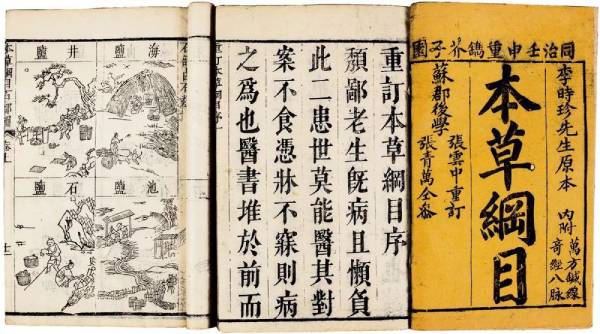 同治壬申重鐫芥子園
李時珍先生原本
內附
萬方鍼線
奇經八脉
本草綱目
蘇郡後學
張雲中重訂
張青萬仝參
重訂本草綱目序
頽鄙老生旣病且懶負
此二患世莫能醫其對
案不食憑牀不寐則病
之爲也醫書堆於前而
重訂本草綱目序
海鹽
井鹽
池鹽
石鹽
本草綱目石部圖
卷上
十一